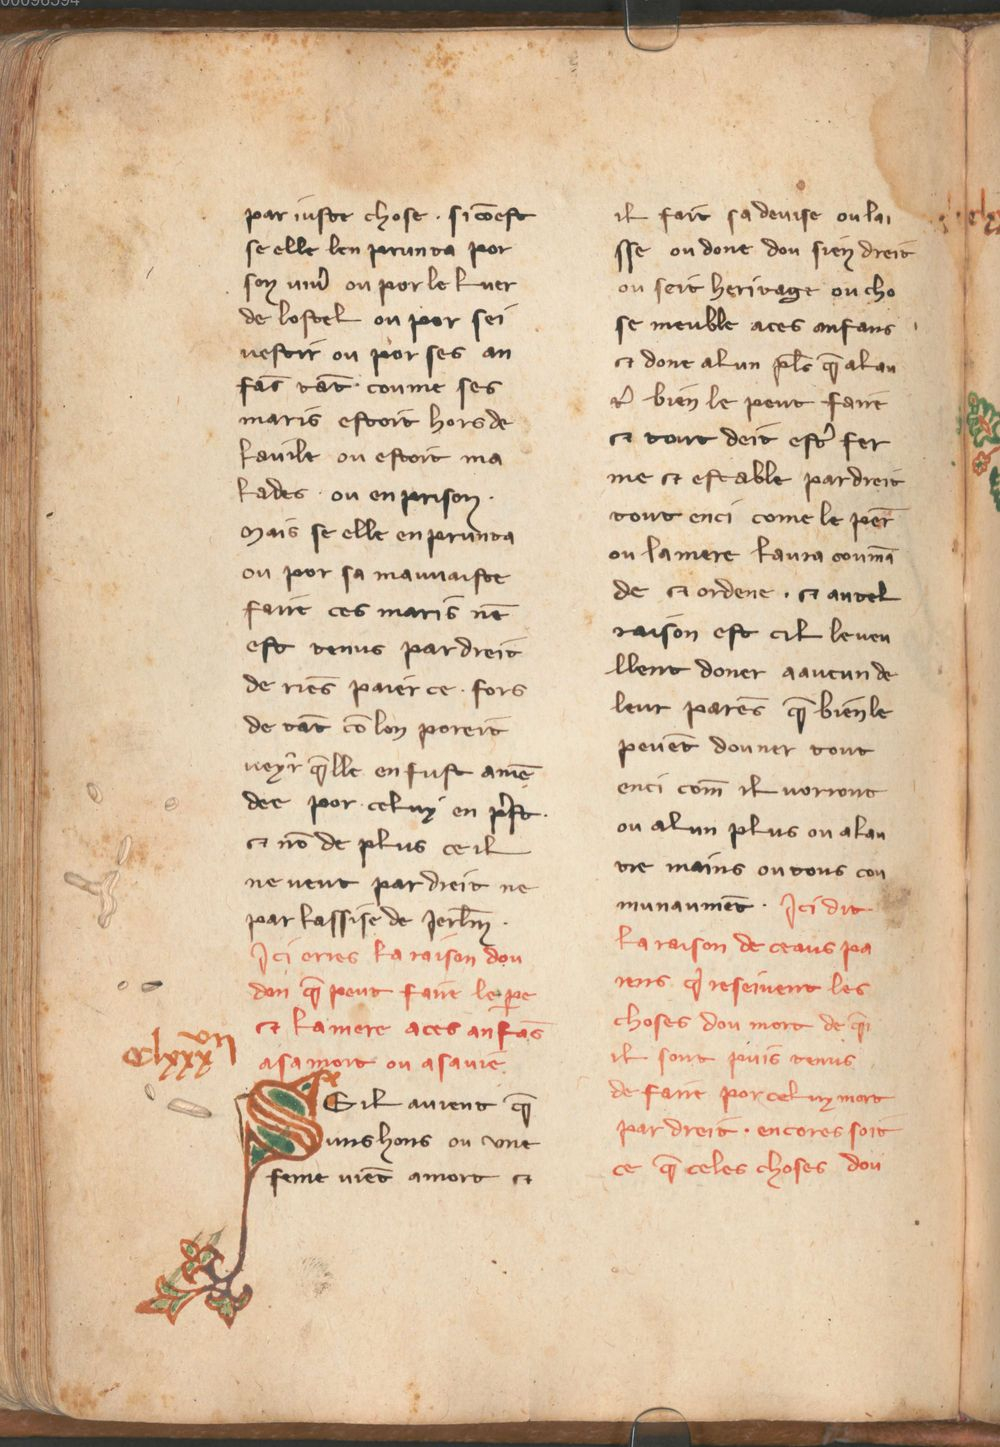 par iuste chose · si cōest
se elle len prunta por
son uiur̾ ou por le luer
de lostel ou por sei
uestir ou por ses an
fās tāt · coume ses
maris estoit hors de
lauile ou estoit ma
lades · ou en prison ·
Mais se elle en prunta
ou por sa mauuaiste
faire ces maris nē
est tenus par dreit
de riēs paier ce · fors
de tāt cō lon poreit
ueyr q̄lle en fust amē
dee por celuy en pr̾st ·
et nō de plus ce il
ne ueut par dreit ne
par lassise de Jerlm̄ ·
Ici orres la raison dou
don q̄ peut faire le pere
et la mere a ces anfās
a sa mort ou a sa uie
clxxxvii
S Eil auient q̄
uns hons ou une
feme uiēt a mort et
il fait sa deuise ou lai
sse ou done dou sien dreit
ou seit heritage ou cho
se meuble a ces anfans
et done a lun pl̄s q̄ a lau
tr̾ bien le peut faire
et tout deit estr̾ fer
me et estable par dreit
tout enci come le per̄
ou la mere laura coumā
de et ordene · et autel
raison est cil le ueu
llent doner a aucun de
leur parēs q̄ bien le
peuēt donner tout
enci com̄ il uorront
ou a lun plus ou a lau
tre mains ou tous cou
munaumēt · Ici dit
la raison de ceaus pa
rens q̄ reseiuent les
choses dou mort de q̄i
il sont puis tenus
de faire por celuy mort
par dreit · encores soit
ce q̄ celes choses dou